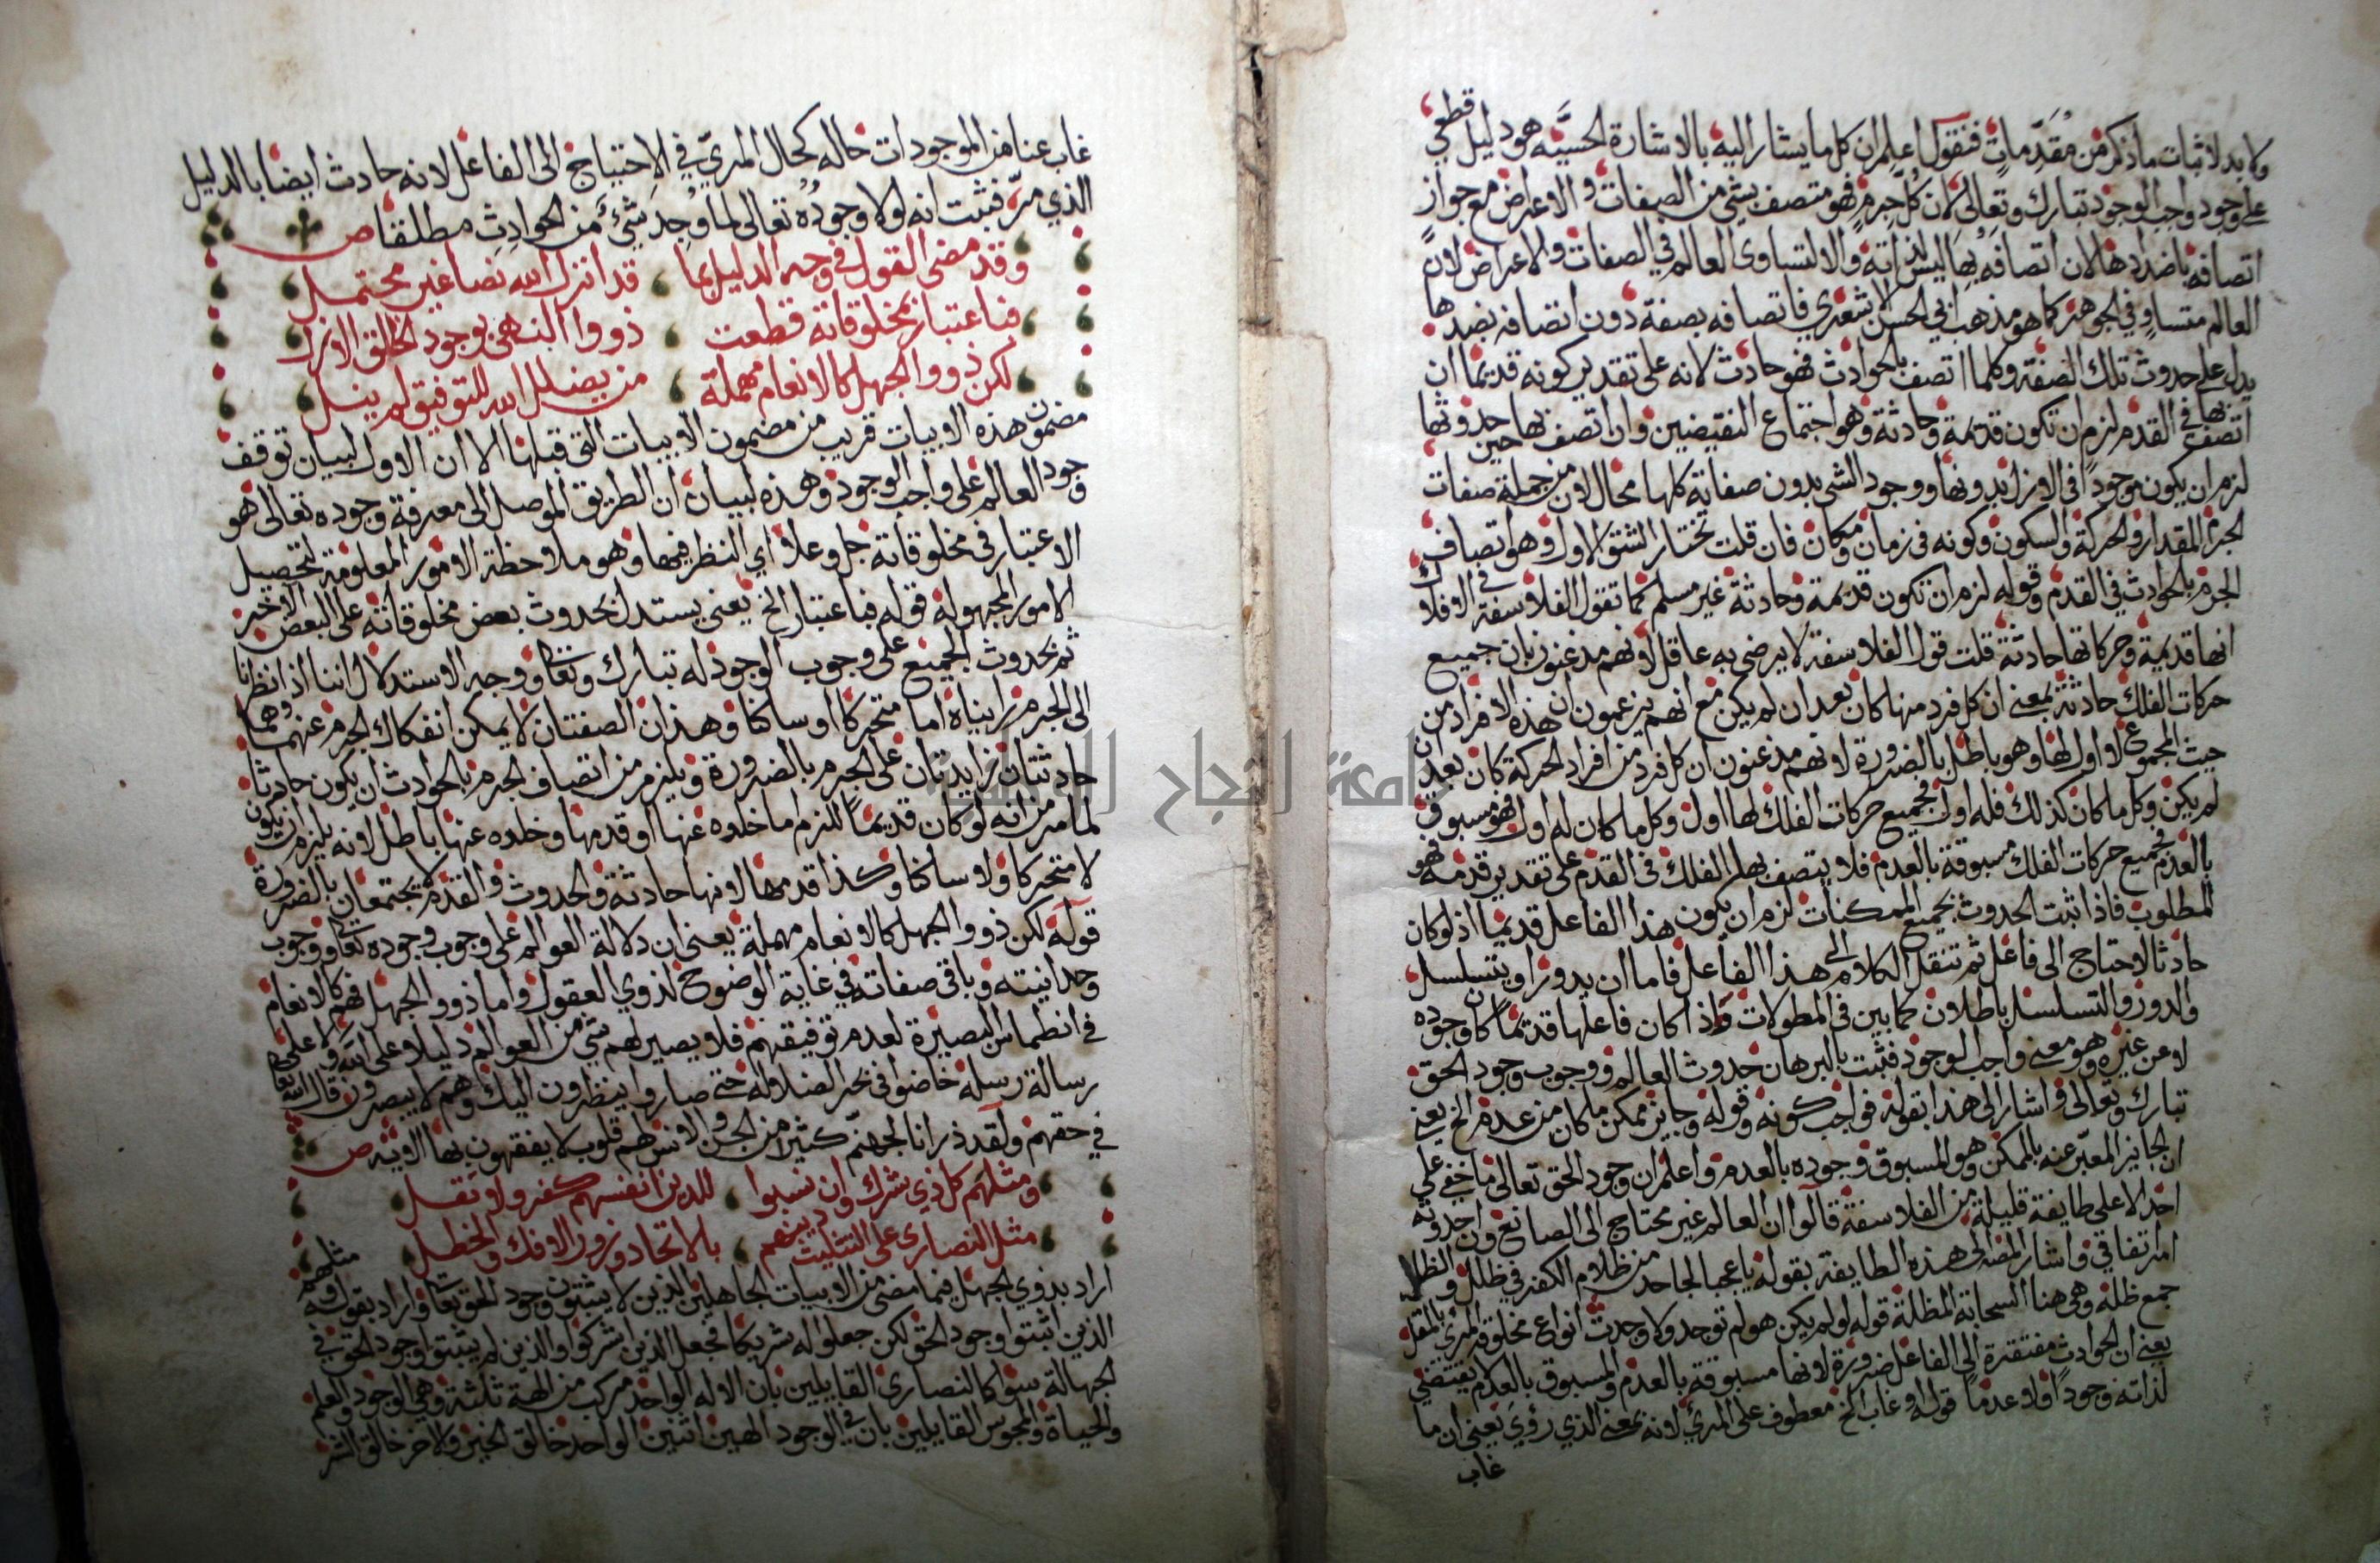 ولا بد لاثبات ما ذكر من مُقَدِّمات فنقول اعلم ان كل ما يشار اليه بالاشارة الحسيَّه هو دليل قطعي
على وجود واجب الوجود تبارك وتعالى لان كل جرم فهو متصف بشئ من الصفات والاعراض مع جواز
اتصافه باضدادها لان اتصافه بها ليس لذاته والا لتساوى العالم في الصفات والاعراض لان
العالم متساوٍ في الجوهر كما هو مذهب ابي الحسن الاشعري فاتصافه بصفة دون اتصافه بضدها
يدل على حدوث تلك الصفة وكلما اتصف بالحوادث فهو حادث لانه على تقدير كونه قديما ان
اتصف بها في القدم لزم ان تكون قديمة وحادثة وهو اجتماع النقيضين وان اتصف بها حين حدوثها
لزم ان يكون موجودا في الازل بدونها ووجود الشي بدون صفاته كلها محال لان من جملة صفات
الجرم المقدار والحركة والسكون وكونه في زمان ومكان فان قلت نختار الشق الاول وهو اتصاف
الجرم بالحوادث في القدم وقوله لزم ان تكون قديمة وحادثة غير مسلم كما تقول الفلاسفة في الافلاك
انها قديمة وحركاتها حادثة قلت قول الفلاسفة لا يرضى به عاقل لانهم مذعنون بان جميع
حركات الفلك حادثة بمعنى ان كل فرد منها كان بعد ان لم يكن مع انهم يزعمون ان هذه الافراد من
حيث المجموع لا اول لها وهو باطل بالضرورة لانهم مذعنون ان كل فرد من افراد الحركة كان بعد ان
لم يكن وكل ما كان كذلك فله اول فجميع حركات الفلك لها اول وكل ما كان له اول فهو مسبوق
بالعدم فجميع حركات الفلك مسبوقة بالعدم فلا يتصف بها الفلك في القدم على تقدير قدمه فهو
المطلوب فاذا ثبت الحدوث بجميع الممكنات لزم ان يكون هذا الفاعل قديما اذ لو كان
حادثا لاحتاج الى فاعل ثم تنقل الكلام الى هذا الفاعل فاما ان يدور او يتسلسل
والدور والتسلسل باطلان كما بين في المطولات واذا كان فاعلها قديما كان وجوده
لا عن غيره وهو معنى واجب الوجود فثبت بالبرهان حدوث العالم ووجوب وجود الحق
تبارك وتعالى واشار الى هذا بقوله فواجب كونه وقوله وجايز ممكن ما كان من عدم الخ يعني
ان الجايز المعبّر عنه بالممكن وهو المسبوق وجوده بالعدم واعلم ان وجود الحق تعالى ما خفي على
احد الا على طايفة قليلة من الفلاسفة قالوا ان العالم غير محتاج الى الصانع وان حدوثه
امر اتفاقي واشار المص الى هذه الطايفة بقوله يا عجبا لجاحد من ظلام الكفر في ظلل والظلل
جمع ظلة وهي هنا السحابة المظلة قوله لو لم يكن هو لم توجد ولا وجدت انواع مخلوقه المرئ بالمقل
يعني ان الحوادث مفتقرة الى الفاعل ضرورة لانها مسبوقة بالعدم والمسبوق بالعدم لا يقتضي
لذاته وجودا ولا عدما قوله او غاب الخ معطوف على المرئ لانه بمعنى الذي رؤي يعني ان ما
غاب
غاب عنا من الموجودات حاله كحال المريّ في الاحتياج الى الفاعل لانه حادث ايضا بالدليل
الذي مرّ فثبت انه لولا وجوده تعالى لما وُجِدَ شئ من الحوادث مطلقا ص
وقد مضى القول في وجه الدليل بما قد انزل الله نصا غير محتمل
فباعتبار مخلوقاته قطعت ذووا النهى بوجود الخالق الازل
لكن ذووا الجهل كالانعام مهملة من يضلل الله للتوفيق لم ينل
مضمون هذه الابيات قريب من مضمون الابيات التي قبلها الا ان الاول لبيان توقف
وجود العالم على واجب الوجود وهذه لبيان ان الطريق الموصل الى معرفة وجوده تعالى هو
الاعتبار في مخلوقاته جل وعلا اي النظر فيها وهو ملاحظة الامور المعلومة لتحصيل
الامور المجهولة قوله فباعتبار الخ يعني يستدل بحدوث بعض مخلوقاته على البعض الاخر
ثم بحدوث الجميع على وجوب الوجود له تبارك وتعالى ووجه الاستدلال اننا اذا نظرنا
الى الجرم رايناه اما متحركا او ساكنا وهذان الصفتان لا يمكن انفكاك الجرم عنهما وهما
حادثتان زايدتان على الجرم بالضرورة ويلزم من اتصاف الجرم بالحوادث ان يكون حادثا
لما مر من انه لو كان قديمًا للزم اما خلوه عنها او قدمها وخلوه عنها باطل لانه يلزم ان يكون
لا متحركا ولا ساكنا وكذا قدمها لانها حادثة والحدوث والقدم لا يجتمعان بالضرورة
قوله لكن ذووا الجهل كالانعام مهملة يعني ان دلالة العوالم على وجوب وجوده تعالى ووجوب
وحدانيته وباقي صفاته في غاية الوضوح لذوي العقول واما ذووا الجهل فهم كالانعام
في انطماس البصيرة لعدم توفيقهم فلا يصير لهم شئ من العوالم دليلا على الله ولا على
رسالة رسله خاضوا في بحر الضلالة حتى صاروا ينظرون اليك وهم لا يبصرون قال الله تعالى
في حقهم ولقد ذرانا لجهنّم كثيرا من الجن والانس لهم قلوب لا يفقهون بها الاية ص
ومثلهم كل ذي شرك وان نسبوا للدين انفسهم كفر ولا تقل
مثل النصارى على التثليث دينهم بالاتحاد وزور الافك والخطل
اراد بذوي الجهل فيما مضى من الابيات الجاهلين الذين لا يثبتون وجود الحق تعالى واراد بقوله ومثلهم
الذين اثبتوا وجود الحق لكن جعلوا له شريكا فجعل الذين اشركوا والذين لم يثبتوا وجود الحق في
الجهالة سوا كالنصارى القايلين بان الاله الواحد مركب من الهة ثلثة وهي الوجود والعلم
والحياة والمجوس القايلين بان في الوجود الهين اثنين الواحد خالق الخير والاخر خالق الشر
جامعة النجاح الوطنية